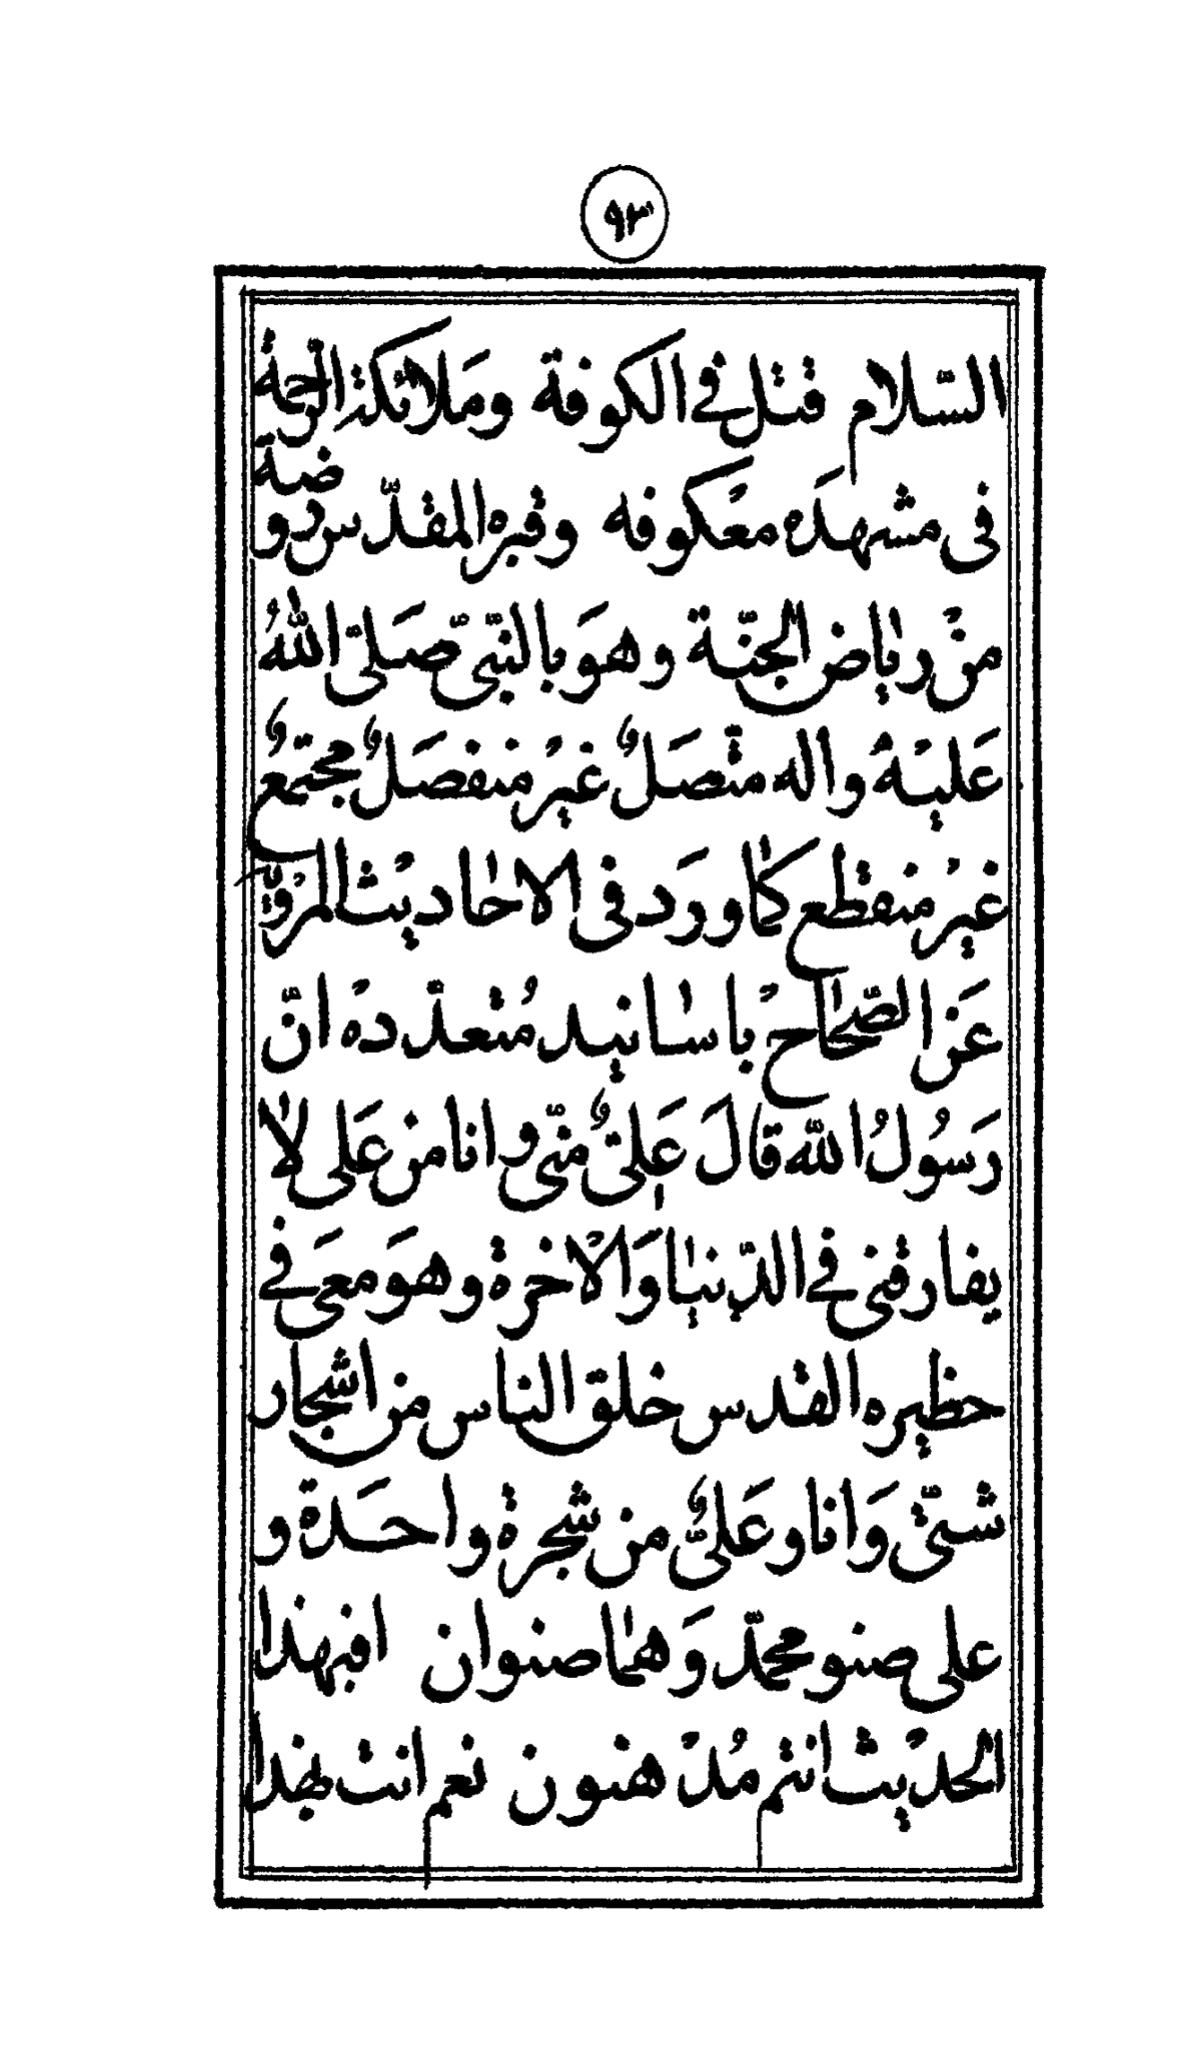 ٩٣
السّلام قتل في الكوفة ومَلائكة الرّحمة
فى مشهدَه معْكوفه وقبره المقدّس روضة
منْ رياض الجنّة وهوَ بالنّبىّ صَلىّ اللّٰهُ
عَليْهُ واله متّصَلٌ غيْر منفصَلٌ مجتمعٌ
غيْر منقطع كمٰا ورَد فى الاحٰاديْث المرْويّ
عَن الصّحٰاحْ باسٰانيد مُتعدّدهْ انّ
رَسُولُ اللّٰه قالَ عَلىٌّ منّى وانا من عَلى لاٰ
يفارقنى في الدّنيٰا وَالاْخرة وهوَ معَى في
حظيره القدس خلق الناس من اشّجار
شتّى وَانا وعَلىٌّ من شّجرة واحَدة و
على صنو محمدّ وَهمٰا صنوان افبهذا
الحديْث انتم مُدْ هنون نعم انت بهذا